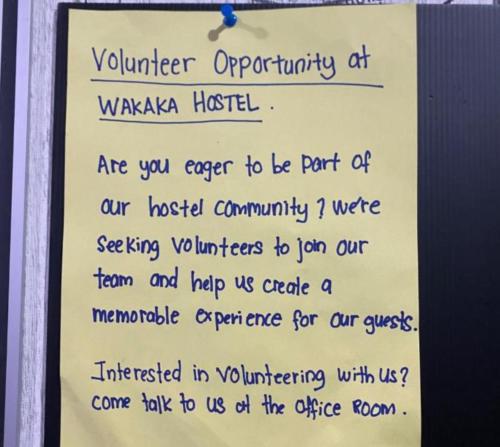 Volunteer Opportunity at
WAKAKA HOSTEL.
Are you eager to be part of
our hostel community? We're
seeking volunteers to join our
team and help us create a
memorable experience for our guests.
Interested in volunteering with us?
come talk to us at the office ROOM.